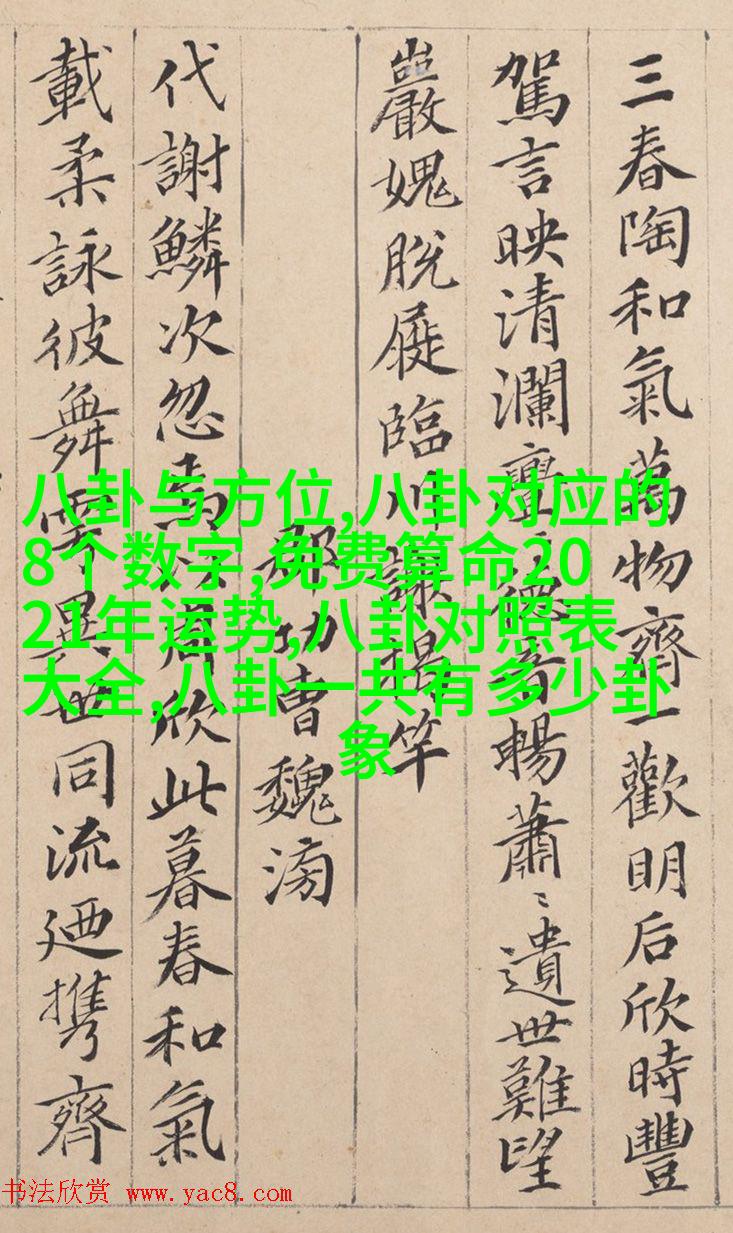 三春陶和氣萬物齊一歡明后欣時豐
駕言映清瀾亹〻德音暢蕭〻遺世難望
巖愧脫屣臨川謝揭竿
郡功曹魏滂
代謝鱗次忽焉以周欣此暮春和氣
載柔詠彼舞雩異世同流廼携齊
八卦与方位,八卦对应的
8个数字,免费算命20
21年运势,八卦对照表
大全,八卦一共有多少卦
象
书法欣赏 www.yac8.com